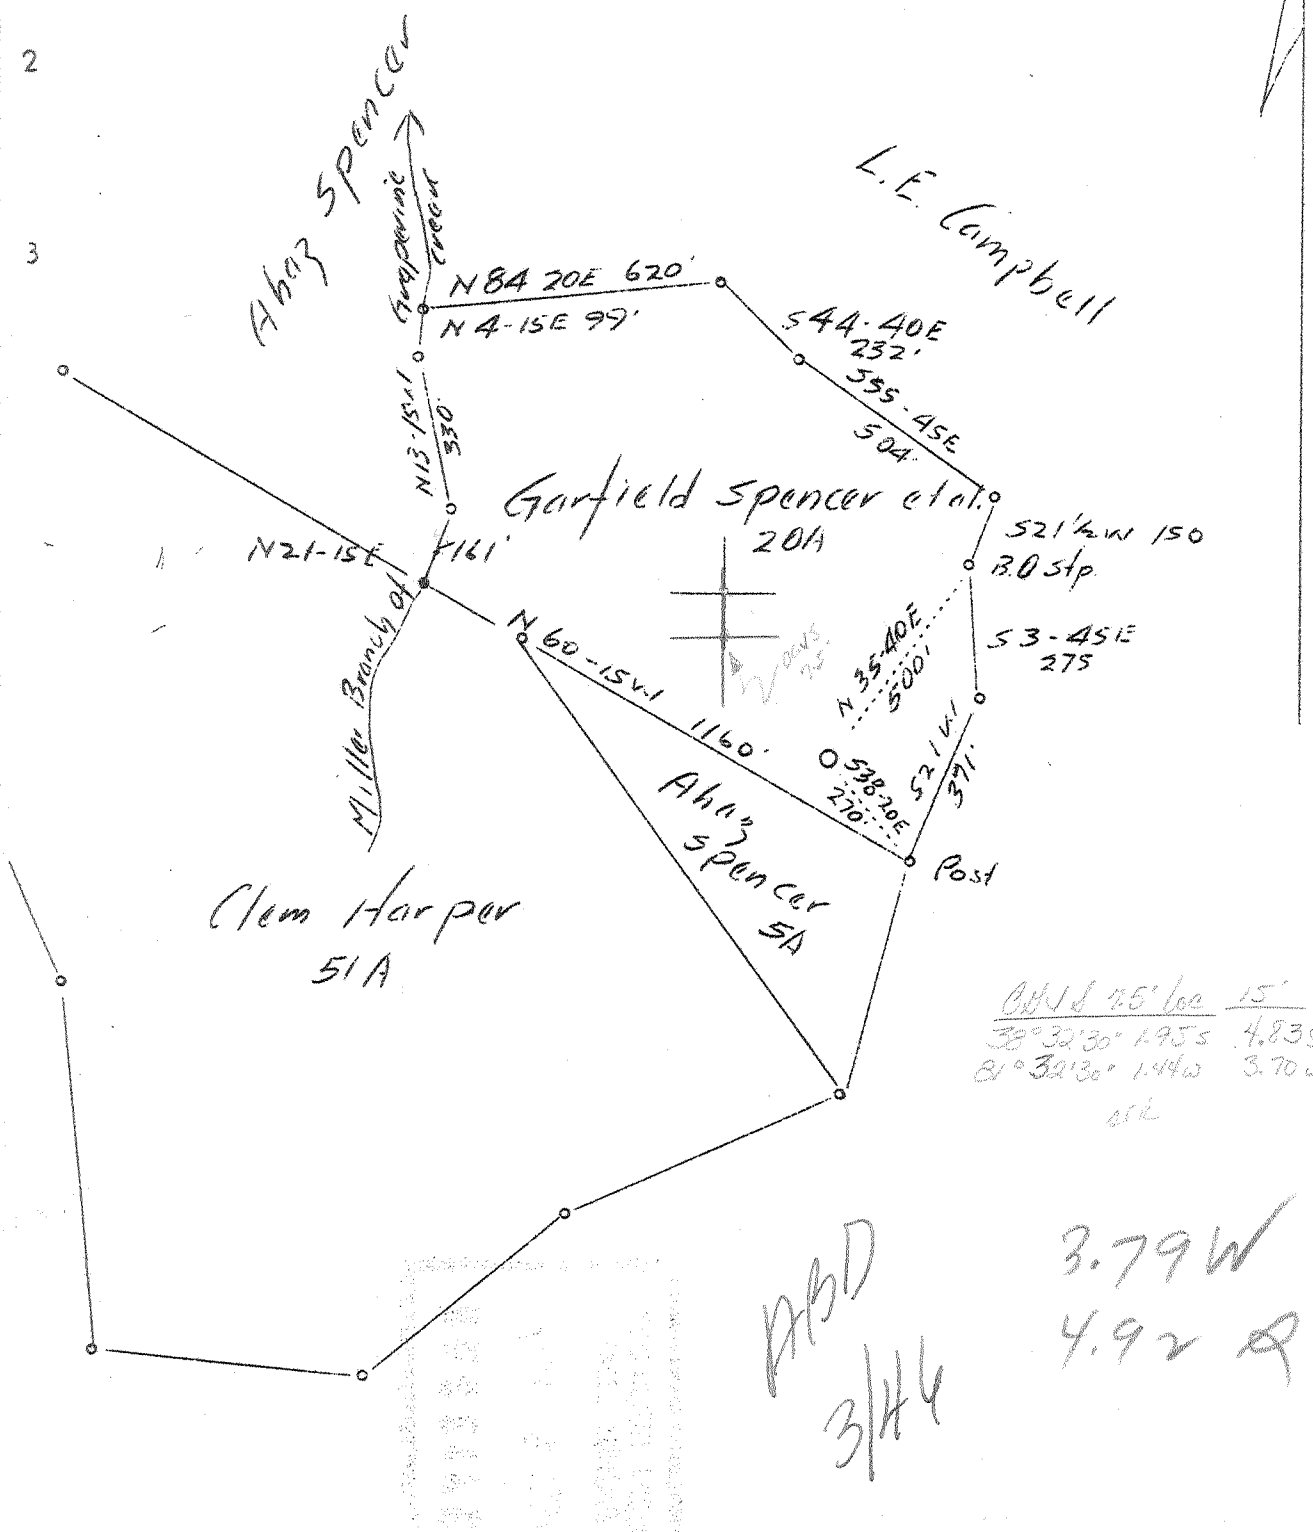 2
3
Ahaz Spencer
Grapevine
Creek
L.E. Campbell
N 84 20E 620'
N 4-15E 99'
S44-40E
232'
S55-45E
504'
N13-15W
330'
Garfield Spencer etal.
20A
S21½W 150
B.O Stp.
N21-15E 161'
S3-45E
275
N 35-40E
500'
N 60-15W 1160'
S38-20E
270'
S21W
391'
Post
Miller Branch of
Ahaz
Spencer
5A
Clem Harper
51A
7.5' loc 15'
38°32'30" 1.95S 4.83S
81°32'30" 1.44W 3.70W
ABD
3/46
3.79W
4.92